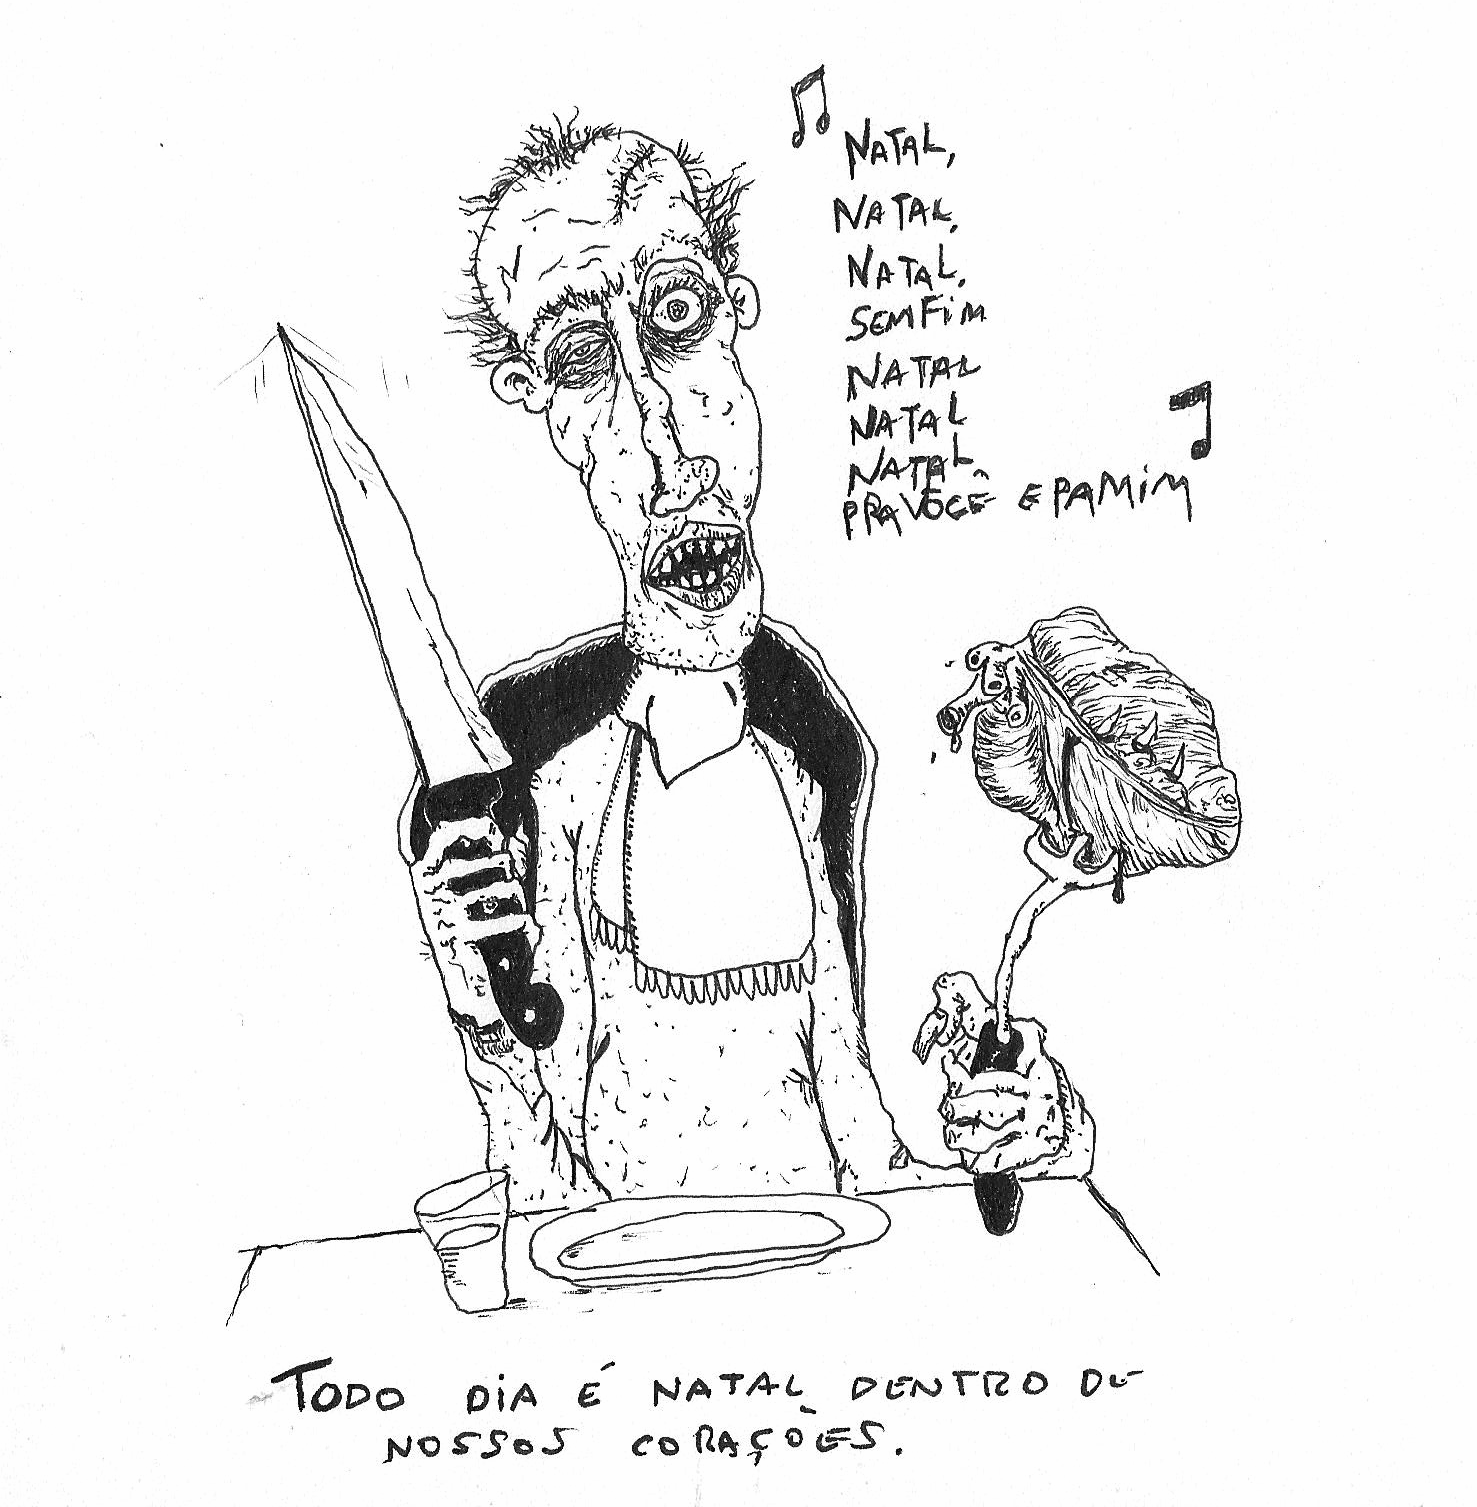 NATAL,
NATAL,
NATAL,
SEMFiM
NATAL
NATAL
NATAL
PRA VOCÊ E PA MiM
TODO DiA É NATAL DENTRO DE
NOSSOS CORAÇÕES.